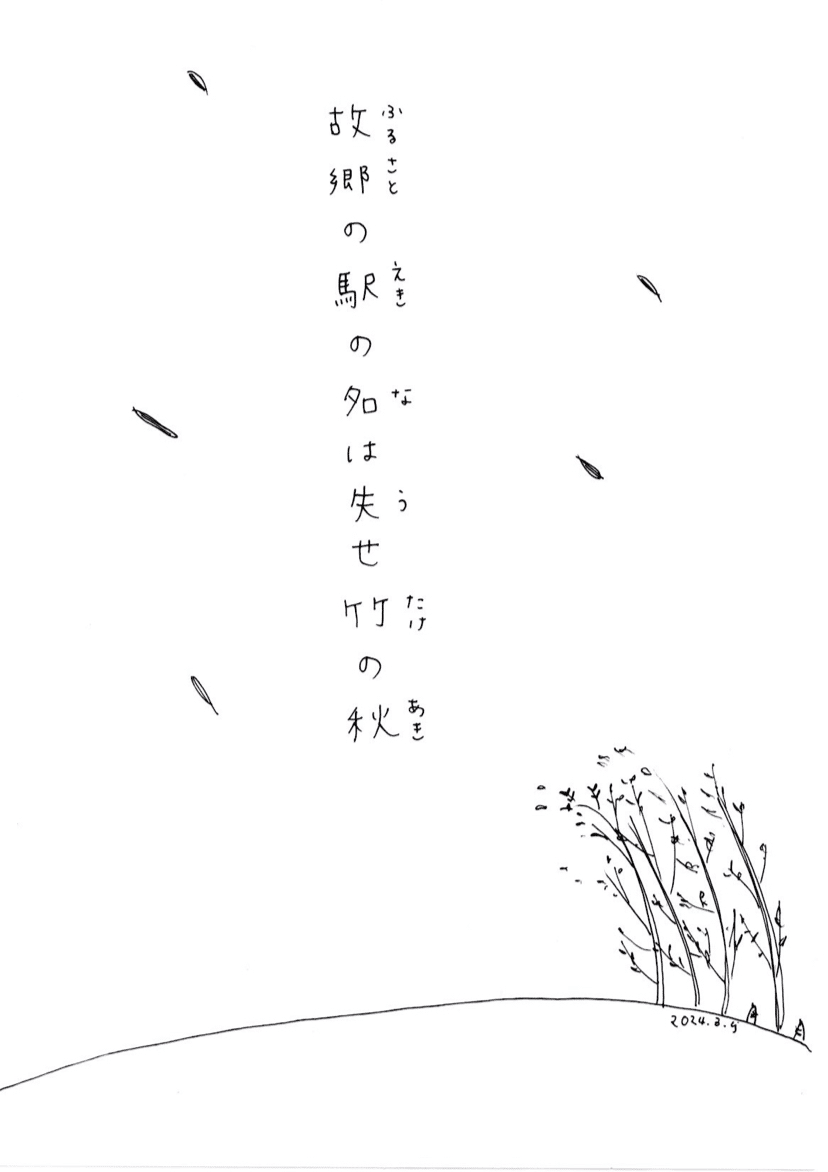 故郷の駅の名は失せ竹の秋
ふるさと えき な う たけ あき
2024.3.5